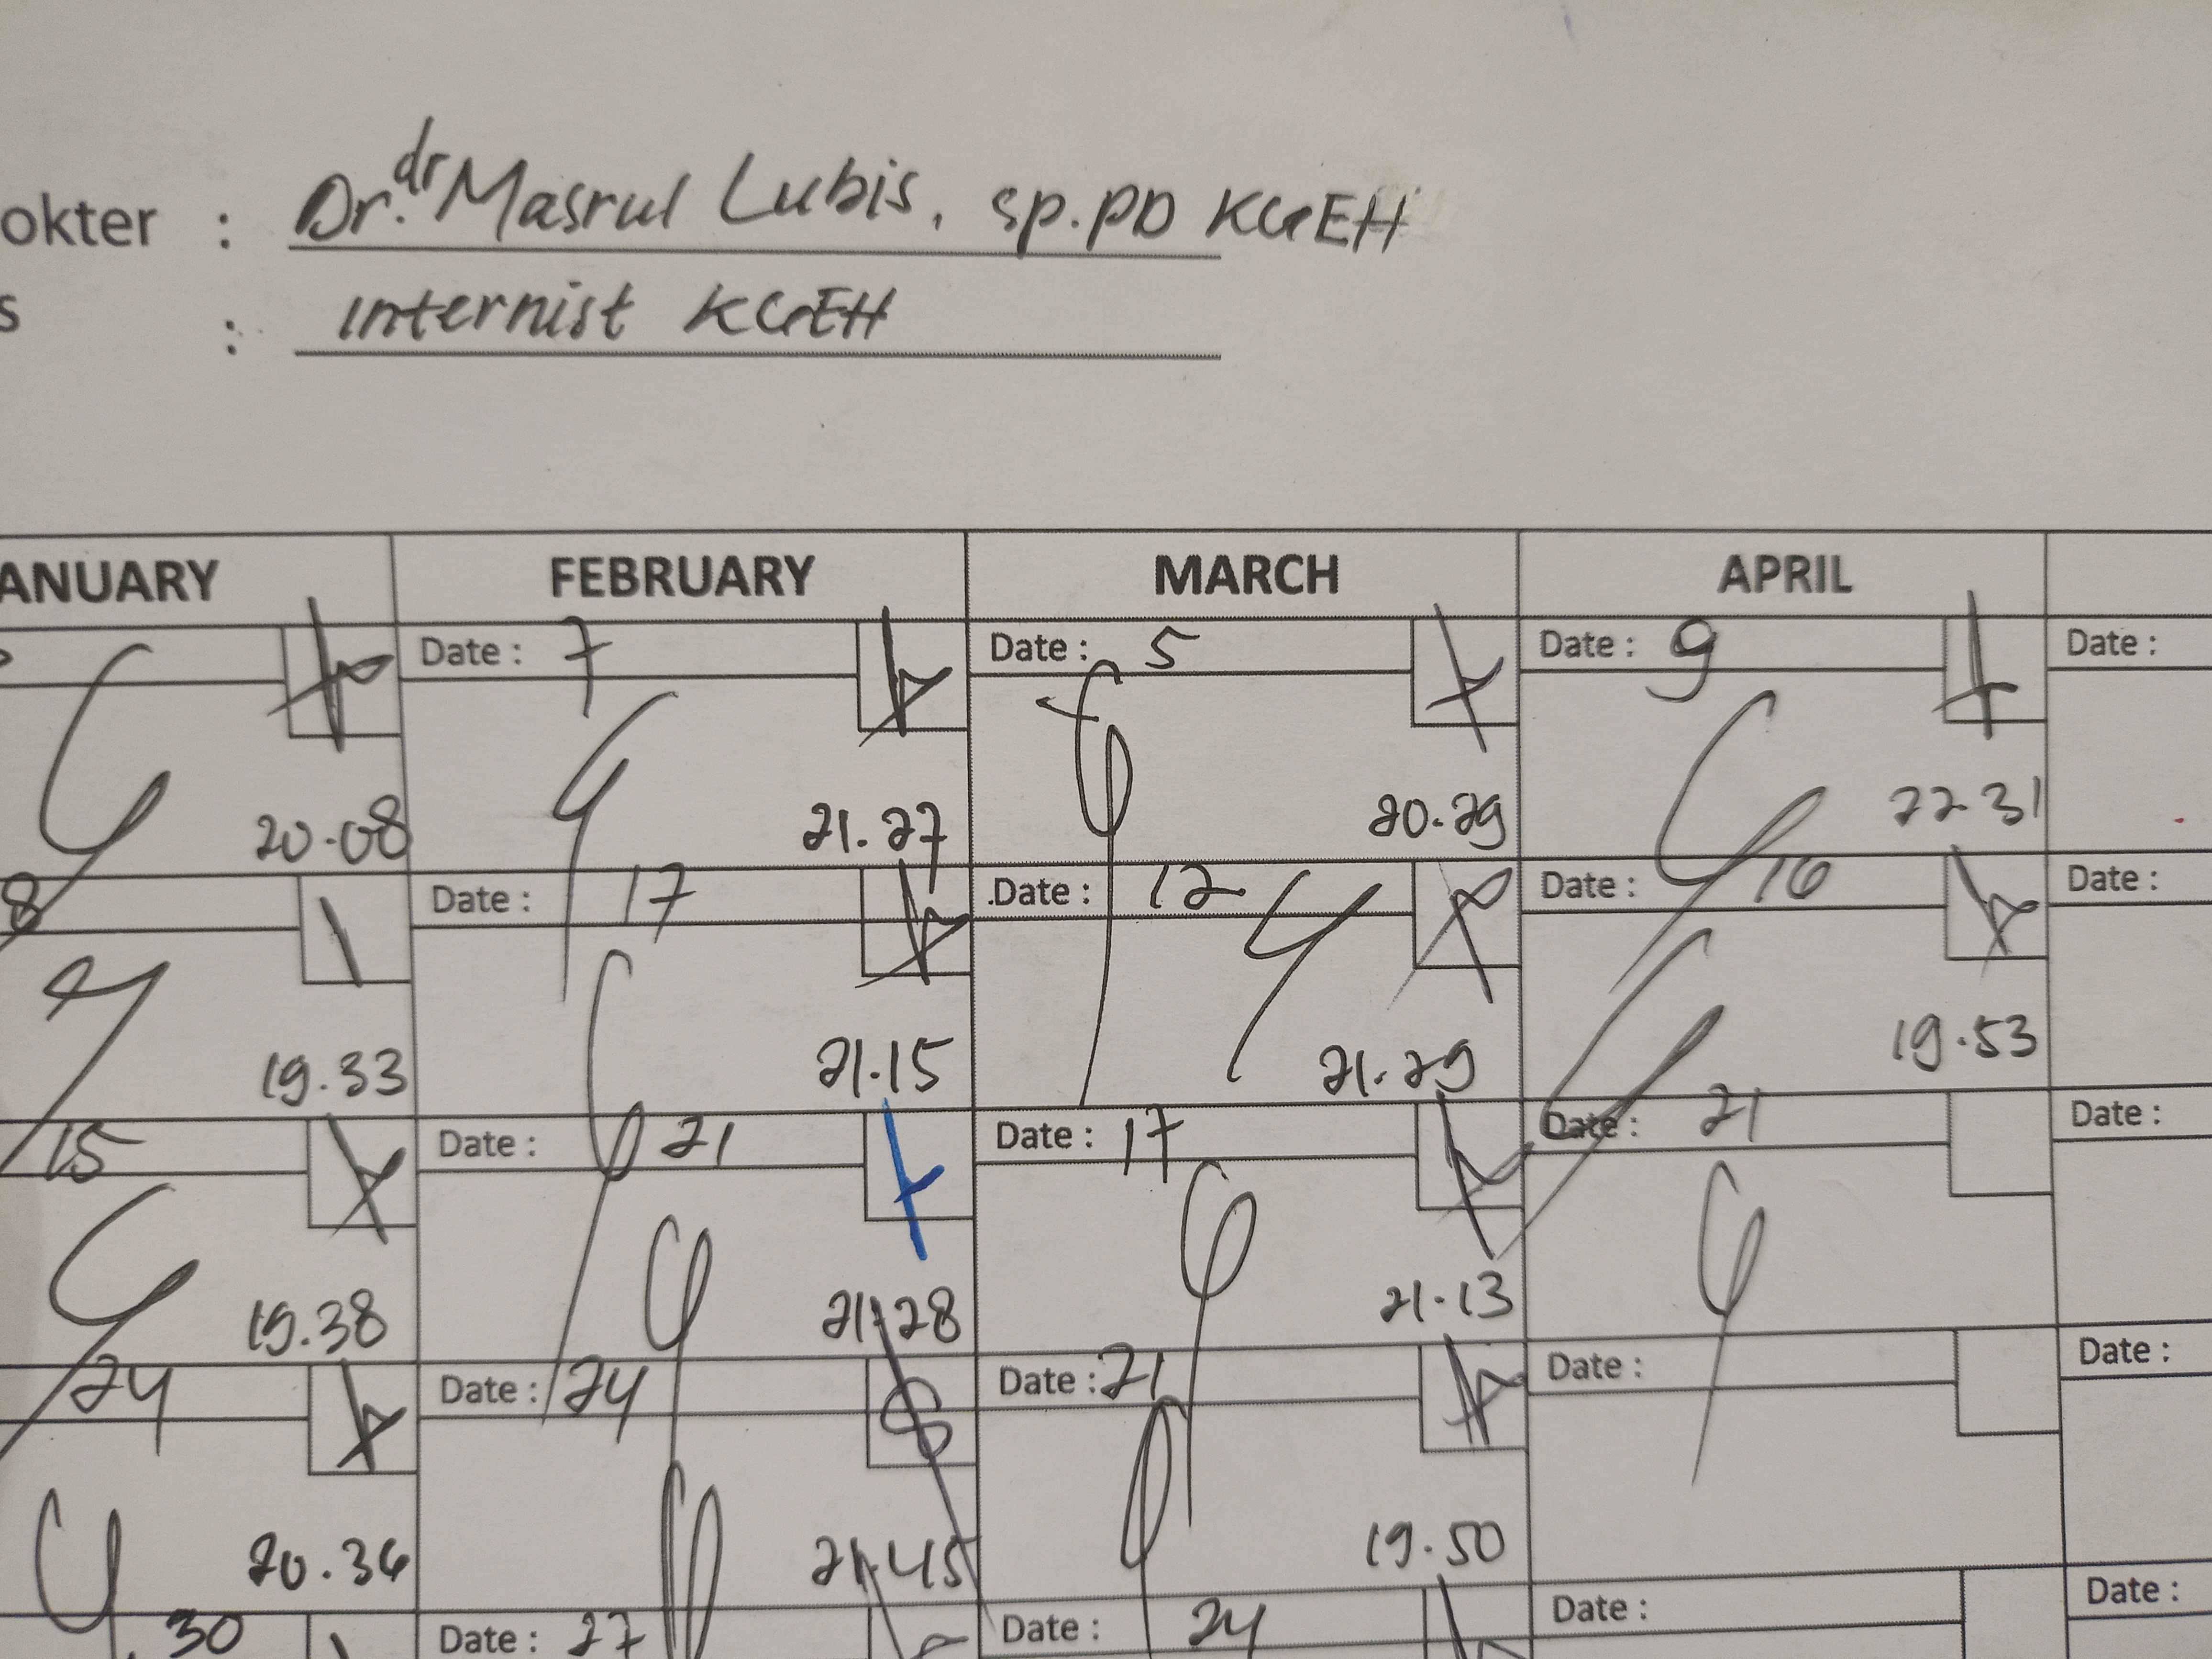 okter : Dr. dr Masrul Lubis, sp.PD KGEH
s : Internist KGEH
ANUARY FEBRUARY MARCH APRIL
Date : 7 Date : 5 Date : 9 Date :
20.08 21.27 20.29 22.31
8 Date : 17 Date : 12 Date : 16 Date :
19.33 21.15 21.29 19.53
15 Date : 21 Date : 17 Date : 21 Date :
19.38 21.28 21.13
24 Date : 24 Date : 21 Date : Date :
20.36 21.45 19.50
30 Date : 27 Date : 24 Date : Date :